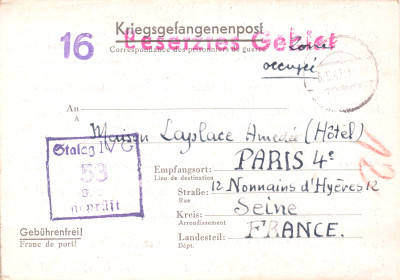 Kriegsgefangenenpost
16
Besetztes Gebiet
Correspondance des prisonniers de guerre
Zone
occupée
An
A
Maison Laplace Amedée (Hôtel)
Stalag IV C
53
geprüft
Empfangsort: PARIS 4e
Lieu de destination
Straße: 12 Nonnains d'Hyères 12
Rue
Kreis: Seine
Arrondissement
Landesteil: FRANCE.
Dépt.
Gebührenfrei!
Franc de port!